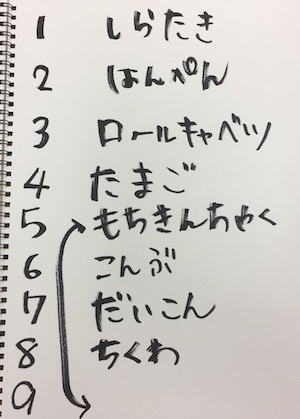 1 しらたき
2 はんぺん
3 ロールキャベツ
4 たまご
5 もちきんちゃく
6 こんぶ
7 だいこん
8 ちくわ
9